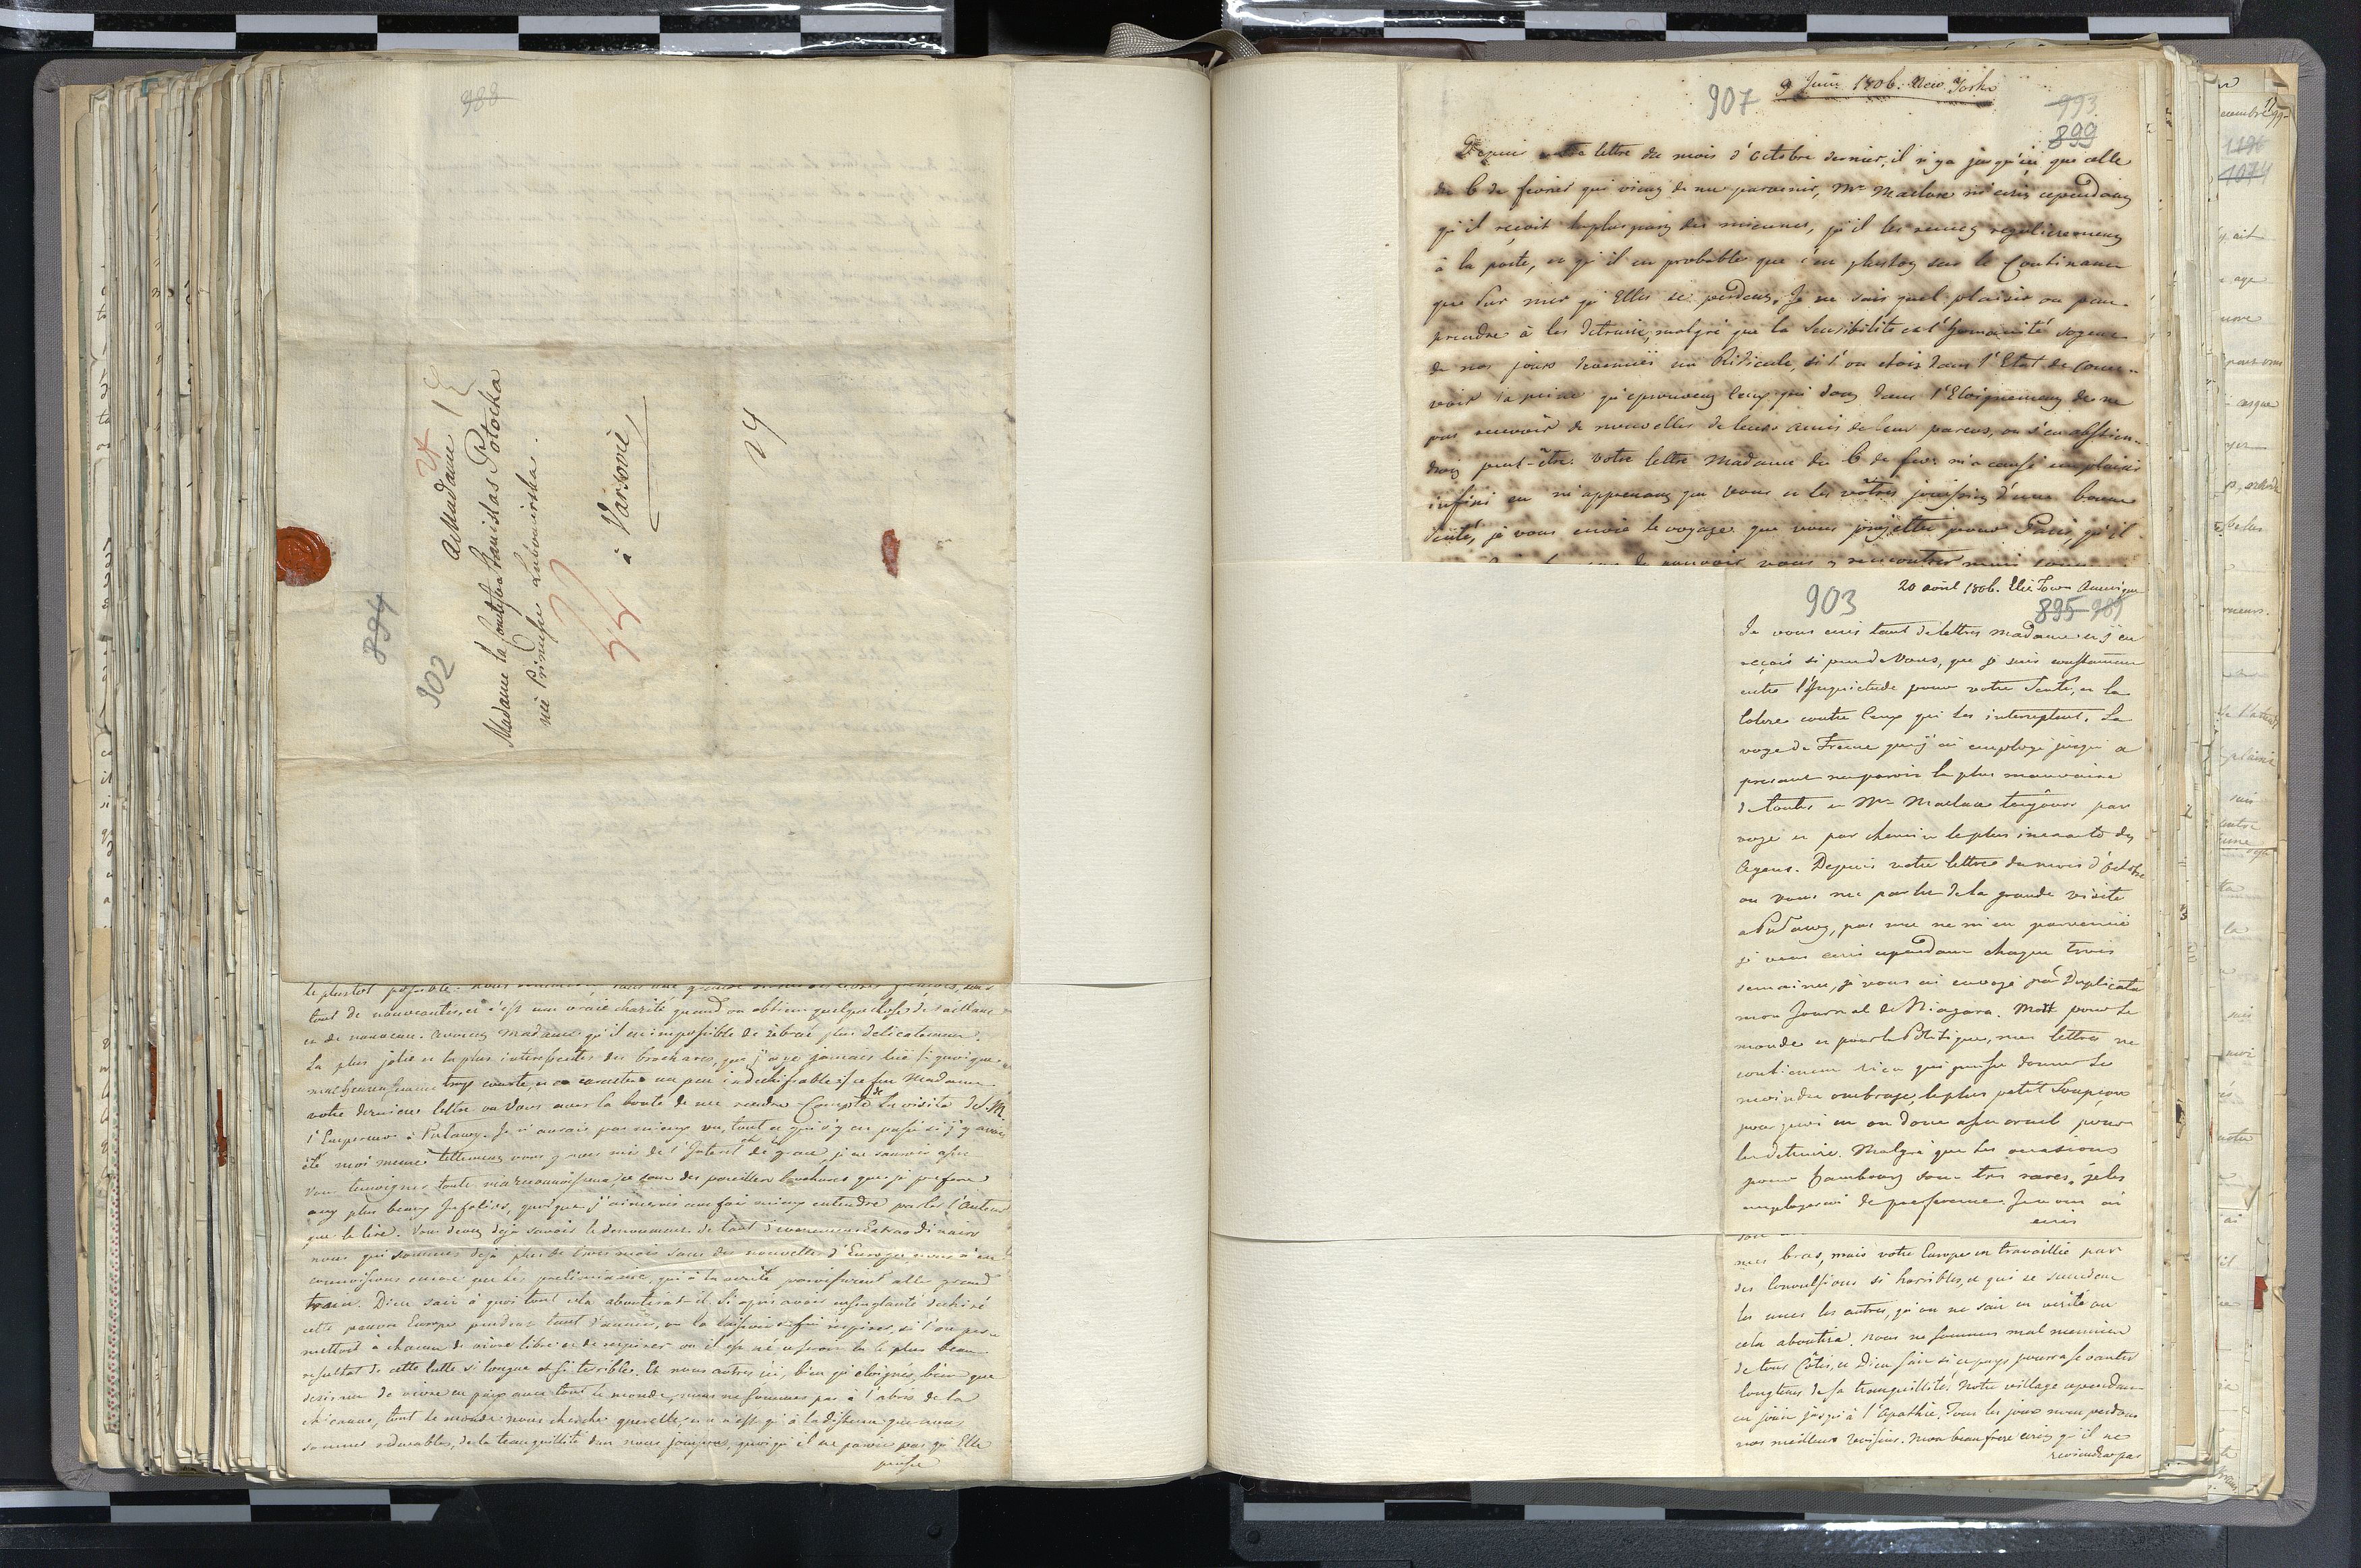 988
A Madame
Madame la Comtesse Stanislas Potocka
née Princesse Lubomirska.
à Varsovie
24
894
902
le plustot possible.
tout de nouveautés, et c'est une vraie charité quand on obtient quelque chose de saillant
et de nouveau. Avouez Madame qu'il est impossible de
La plus jolie et la plus interessante des brochures, que j'aye jamais lue quoique
malheureusement trop courte, et en caractere un peu indechiffrable, ce fut Madame
votre derniere lettre ou Vous avez la bonté de me rendre Compte de la visite de S. M.
l'Empereur à Pulawy. Je n'aurais pas mieux vu, tout ce qui s'y est passé si j'y avais
été moi meme tellement vous y avez mis de l'Interet et de grace, je ne saurois assez
Vous temoigner toute ma reconnoissance, ce sont des pareilles brochures que je prefere
aux plus beaux Infolios, quoique j'aimerois cent fois mieux entendre parler l'Auteur
que le lire. Vous devez deja savoir le denouement de tout d'evenemens Extraordinaires
nous qui sommes deja plus de trois mois sans des nouvelles d'Europe, nous n'en
connoissons encore que les preliminaires, qui à la verité paroissoient aller grand
train. Dieu sait à quoi tout cela aboutirat-il. Si après avoir ensanglanté dechiré
cette pauvre Europe pendant tant d'années, on la laissoit enfin respirer, si l'on per-
mettoit à chacun de vivre libre et de respirer ou il est né ce seroit là le plus beau
resultat de cette lutte si longue et si terrible. Et nous autres ici, bien qu'eloignés, bien que
desireux de vivre en paix avec tout le monde, nous ne sommes pas à l'abris de la
chicanne, tout le monde nous cherche querelle, ce n'est qu'à la distance que nous
sommes redevables, de la tranquillité dont nous jouissons, quoiqu'il ne paroit pas qu'Elle
puisse
907
9 Juin 1806. New York
993
899
Depuis votre lettre du mois d'Octobre dernier, il n'y a jusqu'ici que celle
du 6 de fevrier qui vient de me parvenir, Mr Maclure m'ecrit cependant
qu'il reçoit la plus part des miennes, qu'il les remet regulierement
à la poste, et qu'il est probable que c'est plustot sur le Continent
que sur mer qu'Elles se perdent. Je ne sais quel plaisir on peut
prendre à les detruire, malgré que la Sensibilité et l'humanité soyent
de nos jours devenues un Ridicule, si l'on etoit dans l'Etat de conce-
voir la peine qu'eprouvent Ceux qui sont dans l'Eloignement de ne
pas recevoir de nouvelles de leurs amis de leur parens, on s'en abstien-
droit peut-être. Votre lettre Madame du 6 de fevr: m'a causé un plaisir
infini en m'apprenant que vous et les votres jouissiez d'une bonne
Santé, je vous envie le voyage que vous projettez pour Paris, qu'il
de pouvoir vous y rencontrer mais
903
20 avril 1806. Eliz Town Amerique
895 989
Je vous ecris tant de lettres Madame et j'en
reçois si peu de Vous, que je suis constamment
entre l'Inquietude pour votre Santé, et la
Colere contre Ceux qui les interceptent. La
voye de France que j'ai employé jusqu'a
present me paroit la plus mauvaise
de toutes et Mr Maclure toujours par
voye et par chemin le plus inexacte des
Agens. Depuis votre lettre du mois d'Octobre
ou vous me parlez de la grande visite
a Pulawy, pas une ne m'est parvenue
je vous ecris cependant chaque trois
semaines, je vous ai envoyé par Duplicata
mon Journal de Niagara. Mort pour le
monde et pour la Politique, mes lettres ne
contienent rien qui puisse donner le
moindre ombrage, le plus petit Soupçon
pourquoi est on donc assez cruel pour
les detruire. Malgré que les occasions
pour Hambourg sont tres rares, je les
employerai de preference. Je vous ai
ecris
mes bras, mais votre Europe est travaillée par
des Convulsions si horribles, et qui se succedent
les unes les autres, qu'on ne sait en verité ou
cela aboutira. Nous ne sommes mal menacés
de tous Côtés, et Dieu sait si ce pays pourra se vanter
longtems de sa tranquillité. Notre village cependant
en jouit jusqu'à l'Apathie. Tous les jours nous perdons
nos meilleurs Voisins. Mon beau frere ecrit qu'il ne
reviendra pas